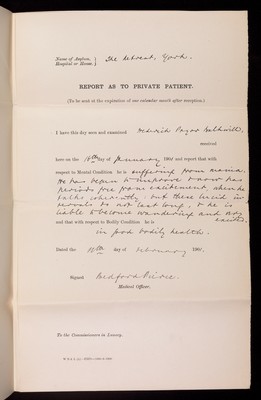 Name of Asylum, Hospital or House. } The Retreat, York.
REPORT AS TO PRIVATE PATIENT.
(To be sent at the expiration of one calendar month after reception.)
I have this day seen and examined Fredrick Paynr
received
here on the 18th day of January 1901 and report that with
respect to Mental Condition he is suffering from mania.
He has begun to improve & now has
periods free from excitement, when he
talks coherently, but these lucid in-
tervals do not last long, & he is
liable to become wandering and very
excited.
and that with respect to Bodily Condition he is
in good bodily health.
Dated the day of February 1901.
Signed Bedford Pierce.
Medical Officer.
To the Commissioners in Lunacy.